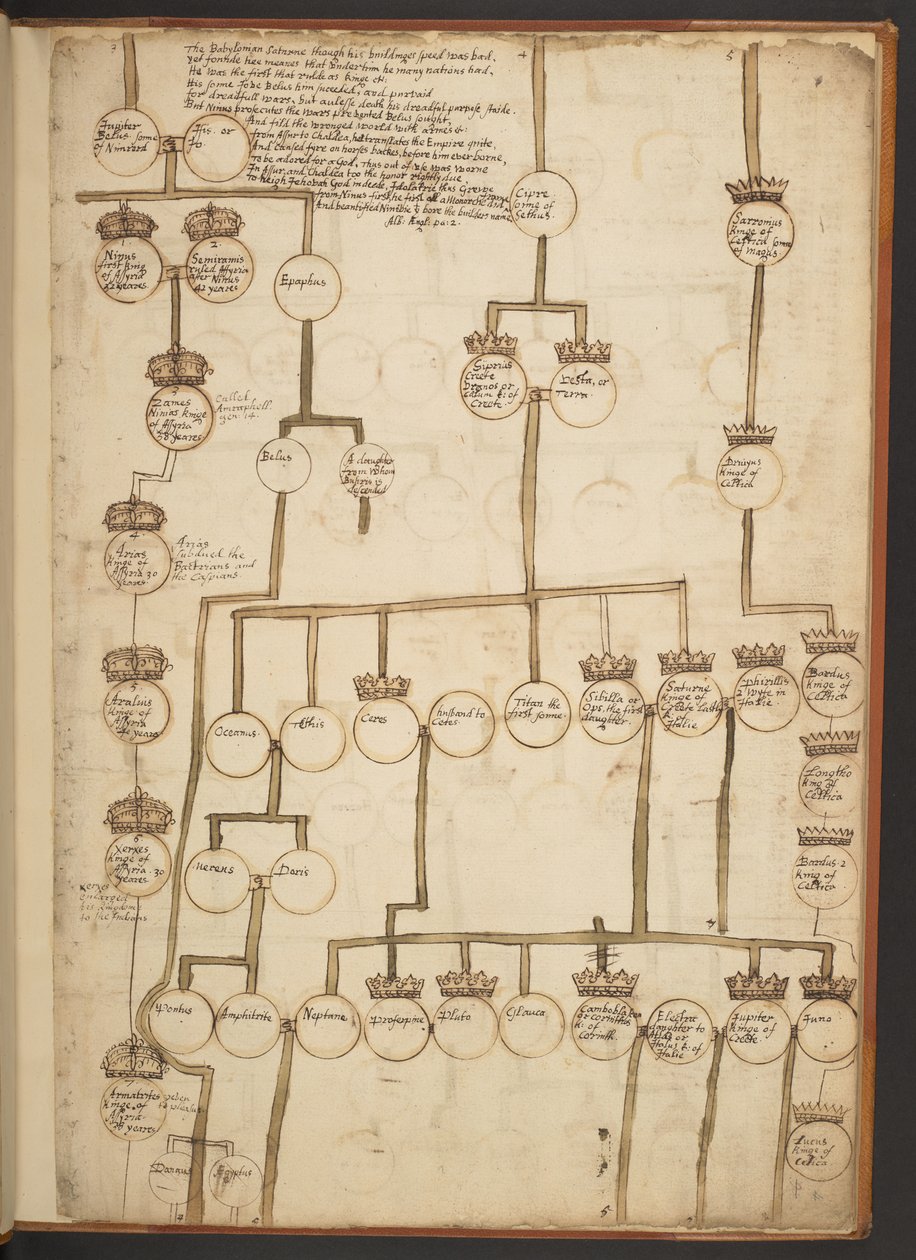 3
4
5
The Babylonian Saturne though his buildinges speed was bad,
yet fonnde hee meanes that vnder him he many nations had,
He was the first that rulde as kinge &c:
His sonne Jove Belus him succeded, and purvaid
for dreadfull wars, but aulesse death his dreadful purpose staide.
But Ninus prosecutes the wars prevented Belus sought,
And fild the wronged world with armes &:
from Assur to Chaldea, he translates the Empire quite,
And caused fyre on horses backes, before him ever borne,
To be adored for a God, Thus out of vse was worne
In Assur, and Chaldea too the honor rightly due
To heigh Jehovah God indeede, Idolatrie thus Grewe
from Ninus first, he first of a Monorche and
And beautified Ninivie bore the builders name
Alb: Engl: pa: 2.
Jupiter
Belus sonne
of Nimrod
Isis. or
Io.
Cipre
sonne of
Cethus.
Sarronius
kinge of
Celtica sonne
of Magus.
1
Ninus
first king
of Assyria
52 yeares.
2.
Semiramis
ruled Assyria
after Ninus
42 yeares
Epaphus
Siprius
Creete
Vranos or
Cælum k: of
Creete.
Vesta, or
Terra.
3
Zames
Ninias kinge
of Assyria
38 yeares.
Called
Amraphell.
gen. 14.
Belus
A daughter
from whom
Busiris is
descended
Druyus
kinge of
Celtica
4
Arias
kinge of
Assyria 30
yeares.
Arias
subdued the
Bactrians and
the Caspians.
5
Aralius
kinge of
Assyria
40 yeares
Oceanus.
Tethis
Ceres
husband to
Ceres.
Titan the
first sonne.
Sibilla or
Ops. the first
daughter.
Saturne
kinge of
Creete
k of
Italie
Phirillis
2 wyfe in
Italie.
Bardus
kinge of
Celtica
Longho
king of
Celtica
Bardus. 2
king of
Celtica
6
Xerxes
kinge of
Assyria. 30
yeares.
Xerxes
enlarged
his kingdome
to the Indians
Nereus
Doris
4
Pontus
Amphitrite
Neptane
Proserpine
Pluto
Glauca
Camboblascon
or corinthus
k: of
Corinth.
Electra
daughter to
Atlas or
Italus k: of
Italie
Jupiter
kinge of
Creete.
Juno
7
Armatrites
kinge of
Assyria.
38 yeares.
geven
to pleasure
Lucus
kinge of
Celtica
Danaus
Egyptus
5